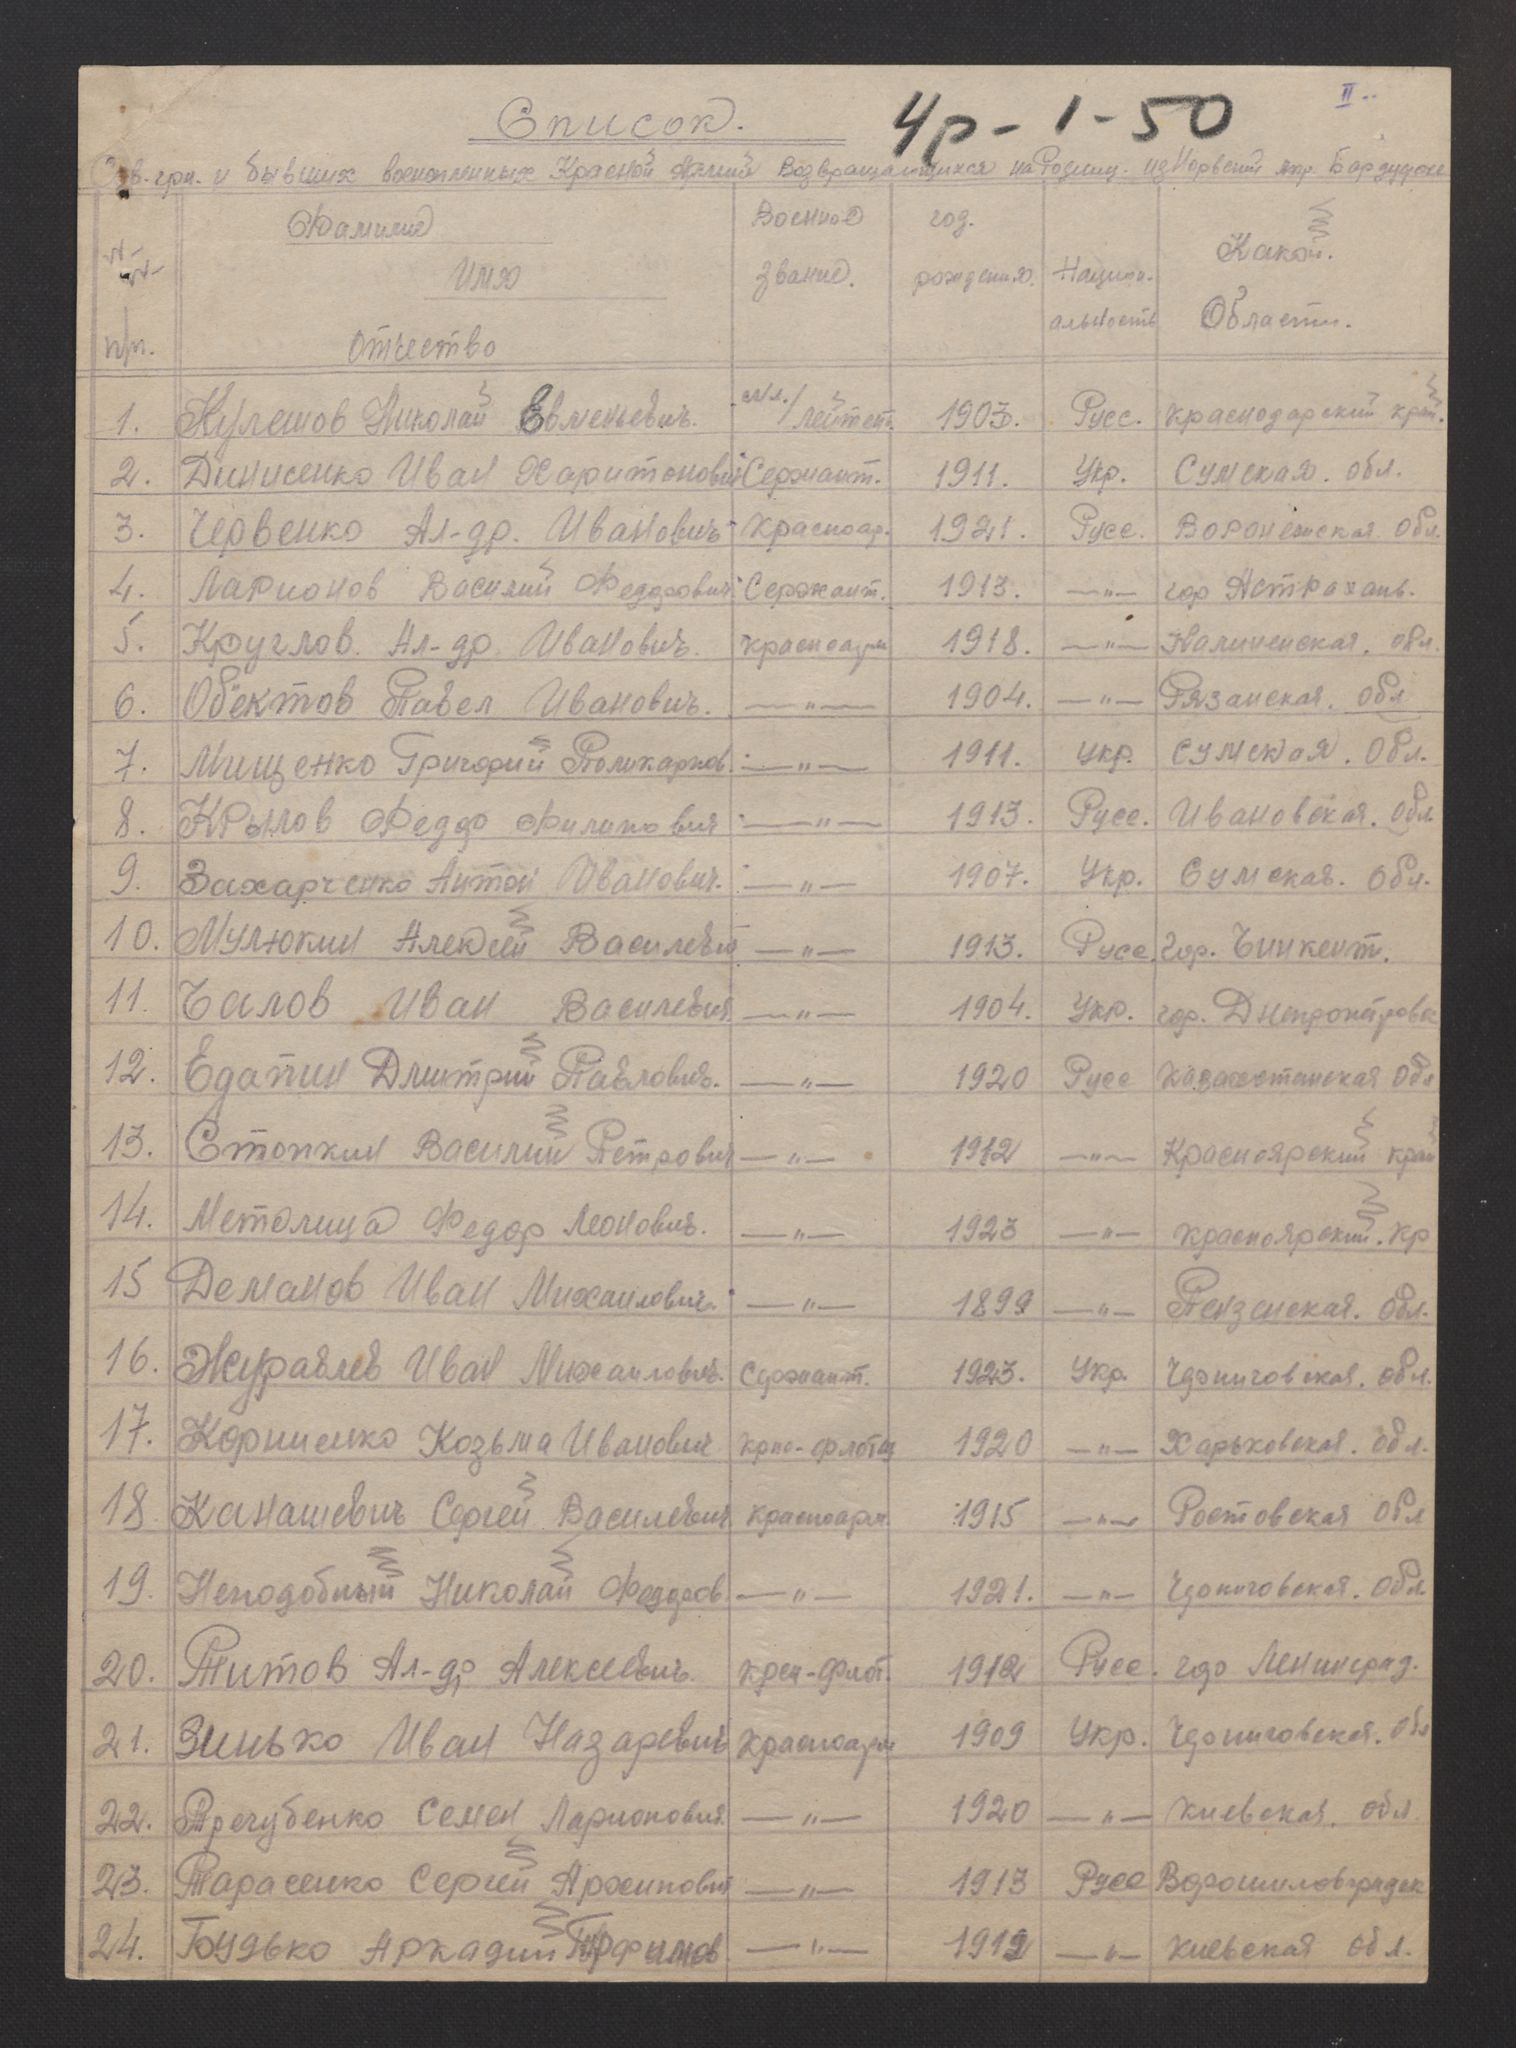 Список. 4р-1-50 II
Сов. грн. и бывших военопленных Красной Армии Возвращающихся на Родину. из Норвегии лгр. Бардуфосс
№ № п/п. Фамилия Имя Отчество Военное звание. год. рождения. Национ-альность Какой. Области.
1. Кулешов Николай Евменьевич. мл./лейтен. 1903. Русс. Краснодарский край.
2. Динисенко Иван Харитонович Сержант. 1911. Укр. Сумская. обл.
3. Червенко Ал-др. Иванович Красноар. 1921. Русс. Воронежская обл.
4. Ларионов Василий Феддорович Сержант. 1913. —"— гор Астрахань.
5. Круглов. Ал-др. Иванович. Красноарм 1918. —"— Калиненская. обл.
6. Объектов Павел Иванович. —"— 1904. —"— Рязанская. обл
7. Мищенко Григорий Поликарпов. —"— 1911. Укр. Сумская. Обл.
8. Крылов Феддо Филипович —"— 1913. Русс. Ивановская. Обл
9. Захарченко Антон Иванович. —"— 1907. Укр. Сумская. Обл.
10. Мулюкин Алексей Василевич —"— 1913. Русс. гор. Чинкент.
11. Чалов Иван Василевич —"— 1904. Укр. гор. Днепропетровск
12. Едапин Дмитрий Павлович. —"— 1920 Русс Казахстанская Обл
13. Стопкин Василий Петрович —"— 1912 —"— Красноярский край
14. Метолица Федор Леонович. —"— 1923 —"— Красноярский. кр
15 Деманов Иван Михаилович. —"— 1899 —"— Пензенская. обл.
16. Журавлев Иван Михаилович. Сержант. 1923. Укр. Черниговская. обл.
17. Корниенко Козьма Иванович Крно-флотец 1920 —"— Харьковская. обл.
18. Канашевич Сергей Василевич Красноарм. 1915 —"— Ростовская обл
19. Неподобный Николай Феддов. —"— 1921. —"— Черниговская. обл
20. Титов Ал-др Алексеевич. Крсн-флот. 1912 Русс. гор Ленинград.
21. Зинько Иван Назаревич Красноарм 1909 Укр. Черниговская. обл
22. Тречубенко Семен Ларионович. —"— 1920 —"— Киевская. обл
23. Тарасенко Сергей Архипович —"— 1913 Русс Ворошиловградск
24. Будько Аркадий Трфимов —"— 1912 —"— Киевская обл.